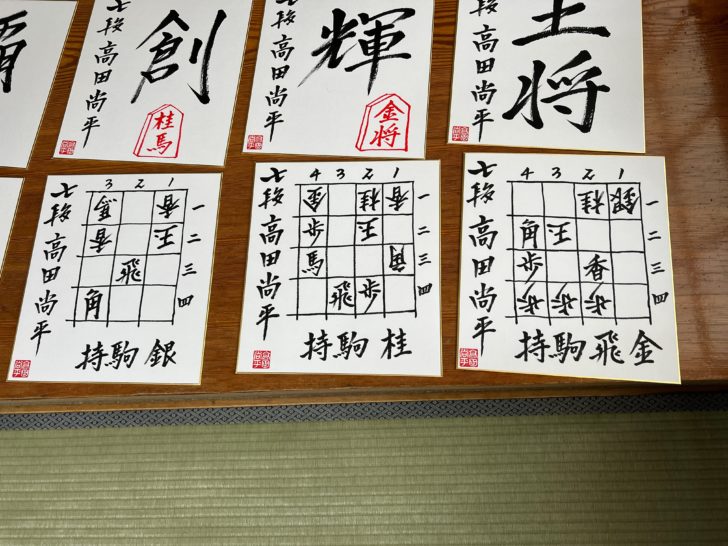 爾
七段 高田尚平
創
桂馬
七段 高田尚平
輝
金将
七段 高田尚平
王将
七段 高田尚平
3 2 1
馬 香 一
香 玉 二
飛 三
角 四
持駒 銀
七段 高田尚平
4 3 2 1
金 桂 香 一
歩 玉 二
馬 角 三
飛 歩 四
持駒 桂
七段 高田尚平
4 3 2 1
桂 銀 一
角 玉 二
歩 香 三
歩 歩 歩 四
持駒 飛 金